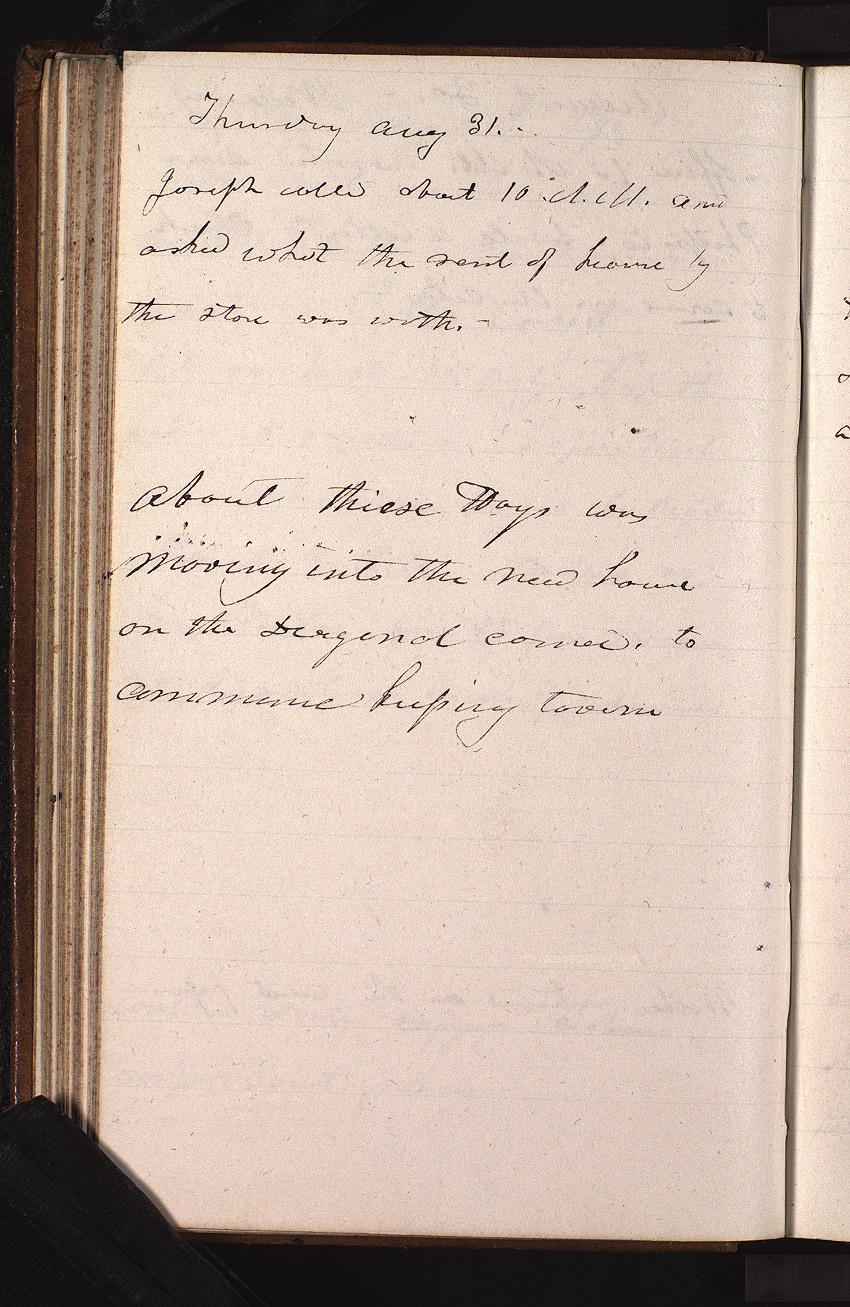 Thursday Aug 31.-
Joseph calld about 10 A.M. and
asked what the rent of house by
the store was woth.-
About thiese Days was
moving into the new house
on the Diagonal corner. to
commence keeping tavern